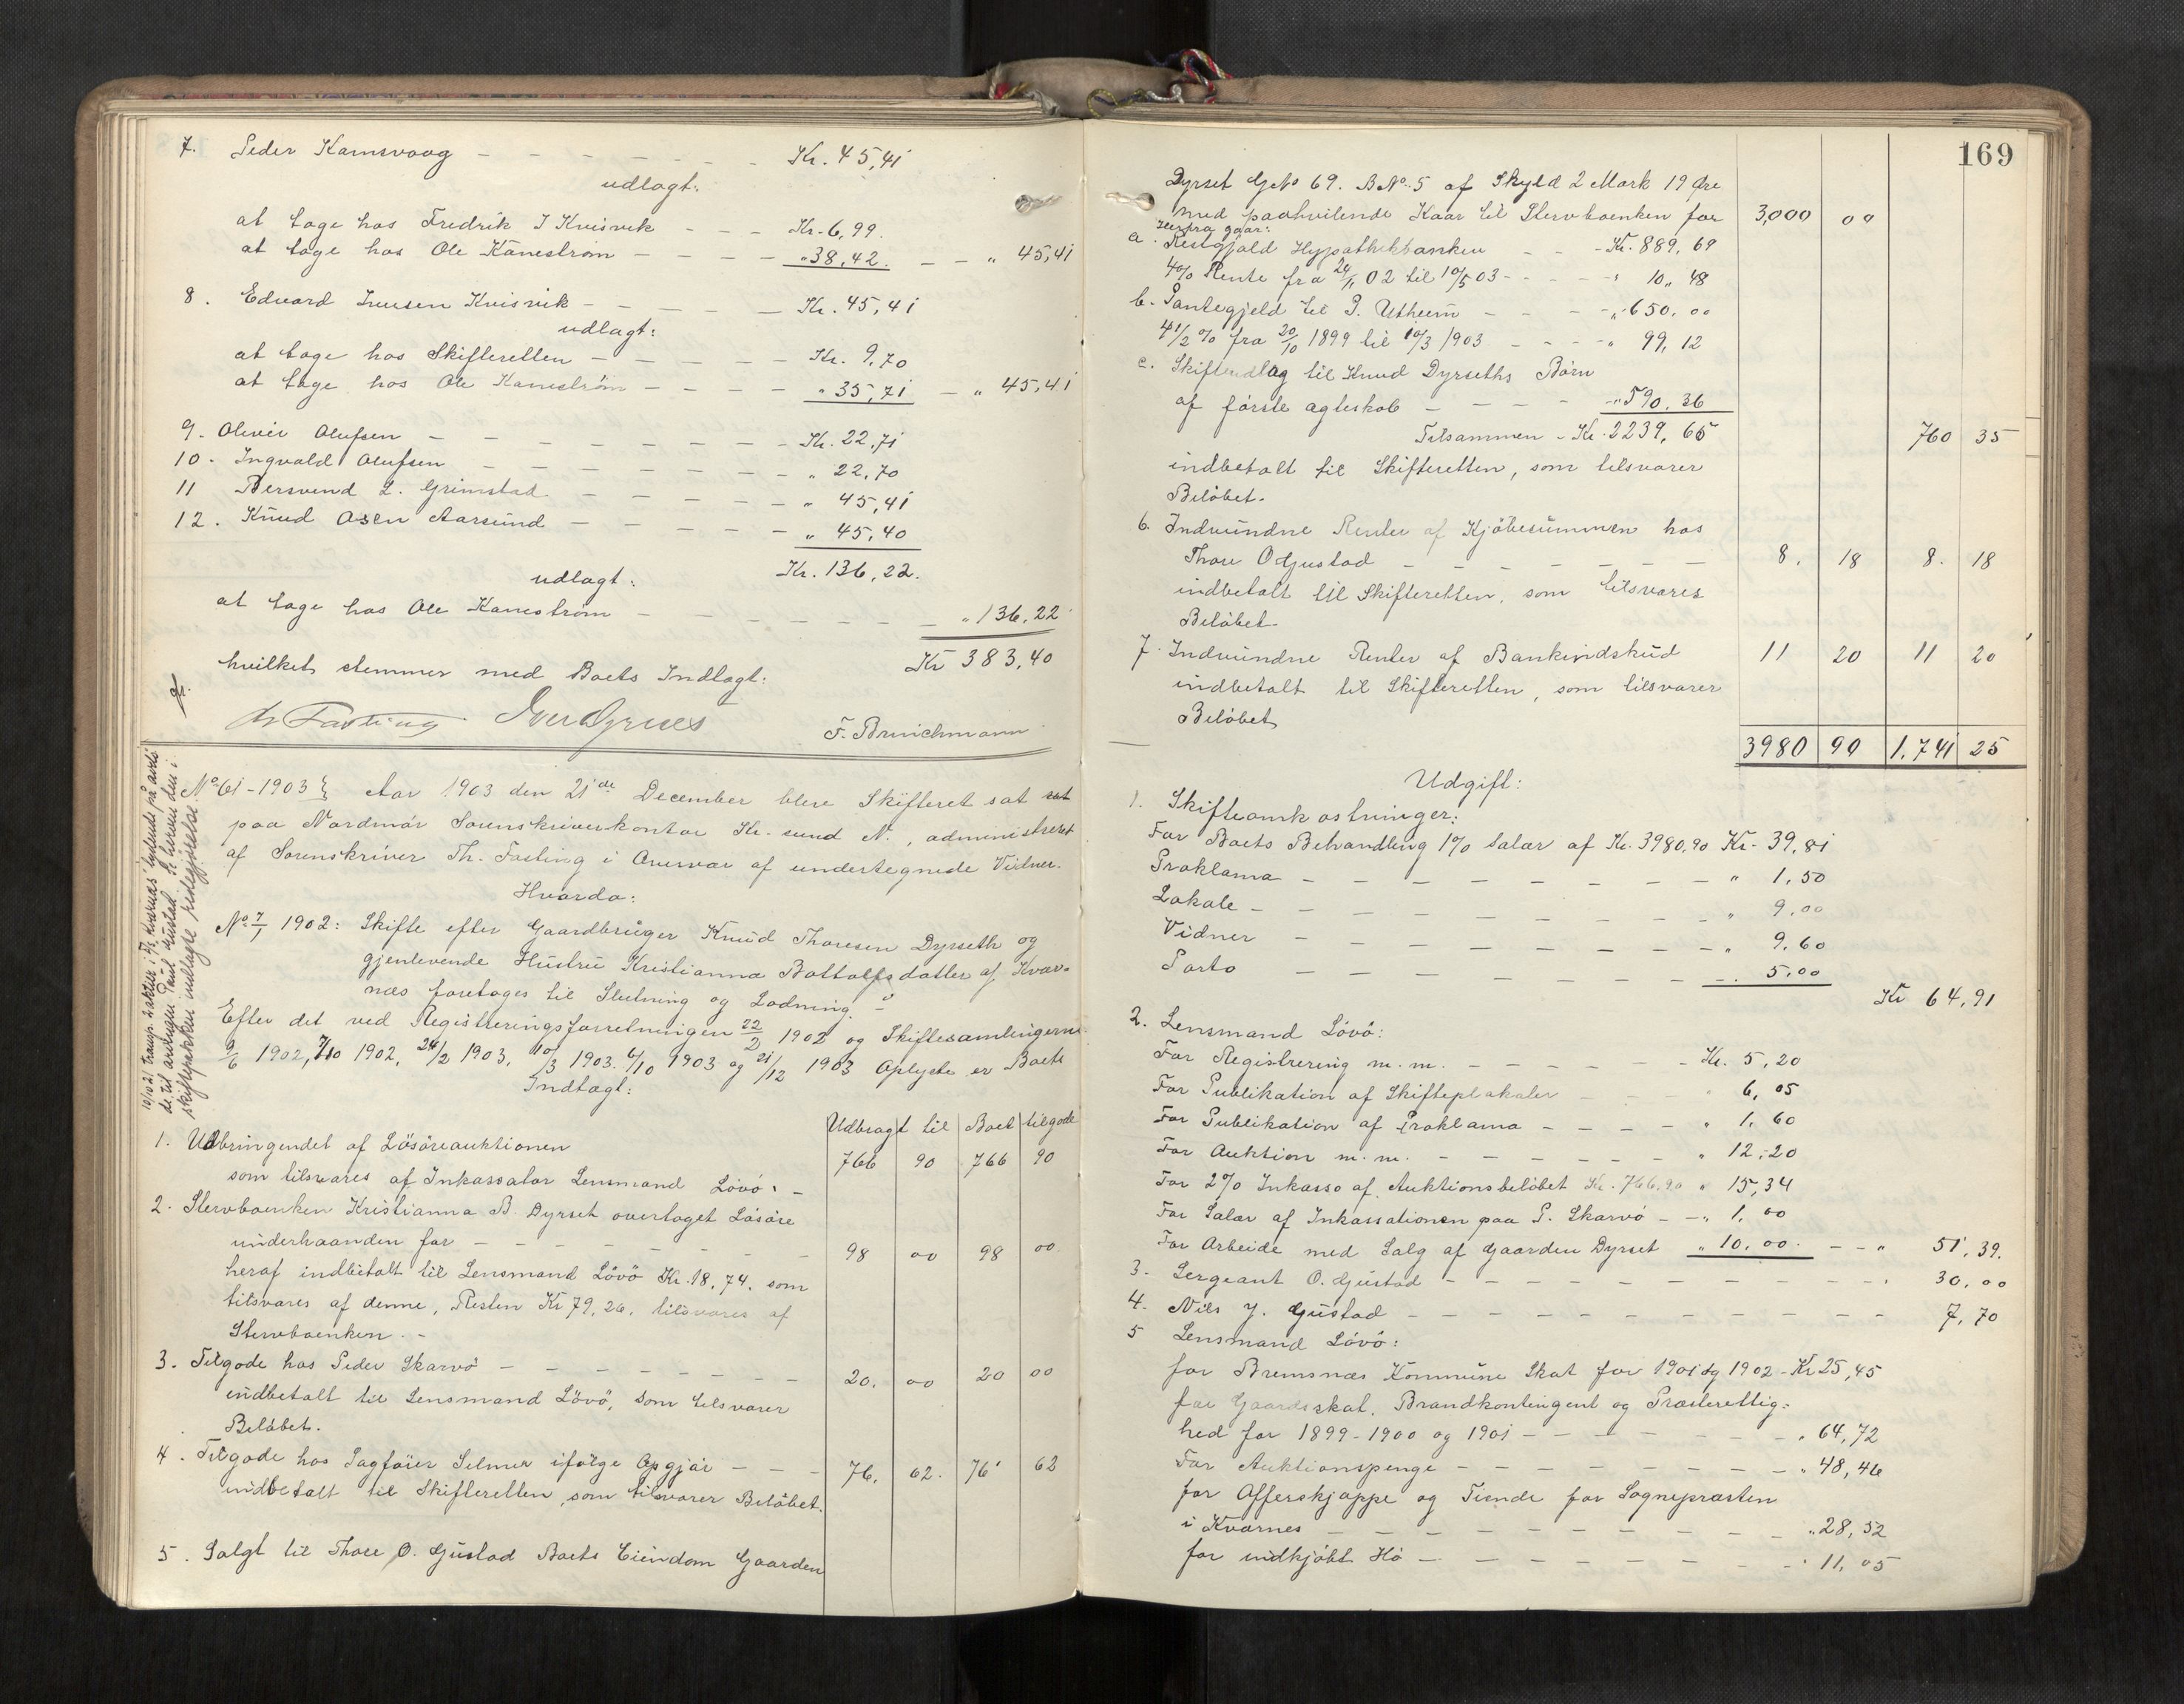 7. Peder Kamsvaag - - - - - - - Kr. 45,41
udlagt:
at tage hos Fredrik I Kvisvik - - - Kr. 6,99.
at tage hos Ole Kanestrøm - - - - „ 38,42. - - „ 45,41
8. Edvard Iversen Kvisvik - - - - - Kr. 45,41
udlagt:
at tage hos Skifteretten - - - - - Kr. 9,70
at tage hos Ole Kanestrøm - - - - „ 35,71 - „ 45,41
9. Oliver Olufsen - - - - - - - Kr. 22,71
10. Ingvald Olufsen - - - - - - - „ 22,70
11 Bersvend L. Grimstad - - - - - „ 45,41
12. Knud Asen Aarsund - - - - - „ 45,40
Kr. 136,22.
udlagt:
at tage hos Ole Kanestrøm - - - - - - - - „ 136,22
Kr 383,40
hvilket stemmer med Boets Indlagt:
Th Fasting F. Brinchmann
No 61-1903 } Aar 1903 den 21de December blev Skifteret sat sat
paa Nordmør Sorenskriverkontor Kr.sund N., administreret
af Sorenskriver Th. Fasting i Overvær af undertegnede Vidner.
Hvorda:
No 7/1 1902: Skifte efter Gaardbruger Knud Thoresen Dyrseth og
gjenlevende Hustru Kristianna Bottolfsdatter af Kvær-
næs foretoges til Slutning og Lodning.
Efter det ved Registreringsforretningen 22/2 1902 og Skiftesamlingerne
9/6 1902, 7/10 1902, 24/2 1903, 10/3 1903. 6/10 1903 og 21/12 1903 Oplyste er Boets
Indtægt:
Udbragt til | Boet tilgode
1. Udbringendet af Løsøreauktionen
766 90 766 90
som tilsvares af Inkassator Lensmand Løvø. -
2. Stervboenken Kristianna B. Dyrset overtaget Løsøre
underhaanden for - - - - - - - - 98 00 98 00
heraf indbetalt til Lensmand Løvø Kr. 18,74. som
tilsvares af denne, Resten Kr 79,26. tilsvares af
Stervboenken. -
3. Tilgode hos Peder Skarvø - - - - - - - 20. 00 20 00
indbetalt til Lensmand Løvø, som tilsvarer
Beløbet.
4. Tilgode hos Sagfører Selmer ifølge Opgjør - - - 76. 62. 76 62
indbetalt til Skifteretten, som tilsvarer Beløbet.
5. Solgt til Thore O. Gustad Boets Eiendom Gaarden
169
Dyrset GNo 69. BNo. 5 af Skyld 2 Mark 19 Øre
med paahvilende Kaar til Stervboenken for 3,000 00
Herfra gaar:
a. Restgjæld Hypothekbanken - - Kr. 889,69
4% Rente fra 24/11 02 til 10/5 03 - - - - „ 10„48
b. Pantegjeld til P. Utheim - - - „ 650.00
4 1/2 % fra 20/10 1899 til 10/3 1903 - - - - „ 99,12
c. Skifteudlæg til Knud Dyrseths Børn
af første ægteskab - - - - „ 590.36
Tilsammen - Kr. 2239,65 760 35
indbetalt til Skifteretten, som tilsvarer
Beløbet.
6. Indvundne Renter af Kjøbesummen hos
Thore O Gustad - - - - - - - 8. 18 8. 18
indbetalt til Skifteretten, som tilsvarer
Beløbet.
7. Indvundne Renter af Bankindskud 11 20 11 20
indbetalt til Skifteretten, som tilsvarer
Beløbet
3980 90 1.741 25
Udgift:
1. Skifteomkostninger:
For Boets Behandling 1% Salær af Kr. 3980,90 Kr. 39,81
Proklama - - - - - - - - - „ 1,50
Lokale - - - - - - - - - - „ 9.00
Vidner - - - - - - - - - - „ 9,60
Porto - - - - - - - - - - 5,00
Kr 64,91
2. Lensmand Løvø:
For Registrering m.m. - - - - - - Kr. 5,20
For Publikation af Skifteplakater - - - „ 6,05
For Publikation af Proklama - - - - „ 1,60
For Auktion m.m. - - - - - - - „ 12,20
For 2% Inkasso af Auktionsbeløbet Kr. 766.90 „ 15,34
For Salær af Inkassationen paa P. Skarvø - - „ 1,00
For Arbeide med Salg af Gaarden Dyrset „ 10,00. - - „ 51,39.
3. Sergeant O. Gustad - - - - - - - - - - - - 30,00
4. Nils J. Gustad - - - - - - - - - - - - 7,70
5 Lensmand Løvø:
for Bremsnæs Kommune Skat for 1901 og 1902 - Kr 25,45
for Gaardsskat, Brandkontingent og Præsterettig-
hed for 1899-1900 og 1901 - - - - - - - „ 64,72
For Auktionspenge - - - - - - - - - „ 48,46
for Offerskjæppe og Tiende for Sognepræsten
i Kværnes - - - - - - - - - - „ 28,52
for indkjøbt Hø - - - - - - - - - „ 11,05